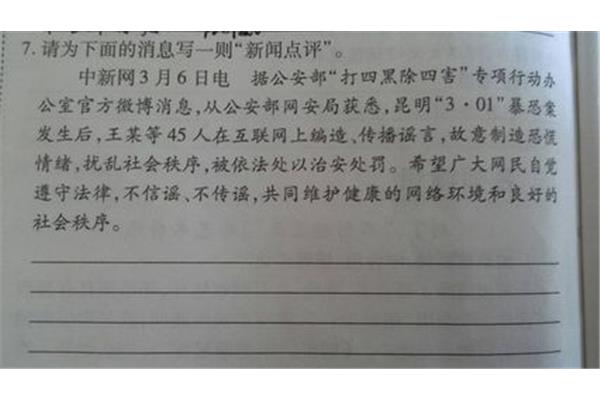 7.请为下面的消息写一则“新闻点评”。
中新网3月6日电 据公安部“打四黑除四害”专项行动办
公室官方微博消息，从公安部网安局获悉，昆明“3·01”暴恐案
发生后，王某等45人在互联网上编造、传播谣言，故意制造恐慌
情绪，扰乱社会秩序，被依法处以治安处罚。希望广大网民自觉
遵守法律，不信谣、不传谣，共同维护健康的网络环境和良好的
社会秩序。